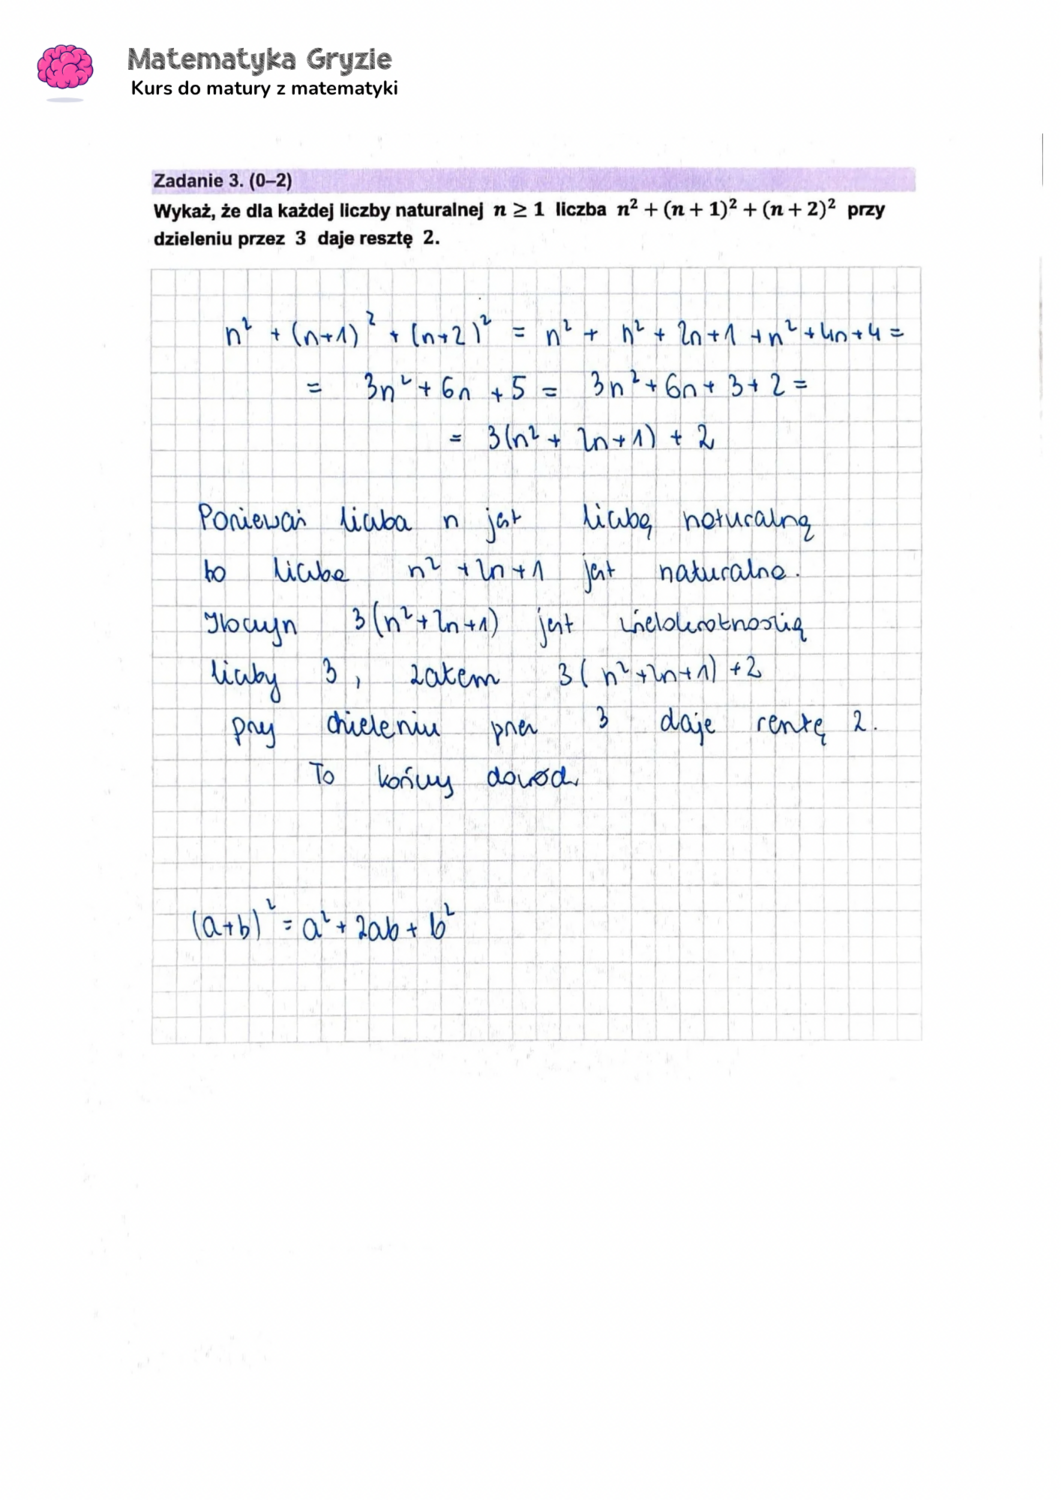 Matematyka Gryzie
Kurs do matury z matematyki
Zadanie 3. (0–2)
Wykaż, że dla każdej liczby naturalnej n ≥ 1 liczba n² + (n + 1)² + (n + 2)² przy
dzieleniu przez 3 daje resztę 2.
n² + (n+1)² + (n+2)² = n² + n² + 2n+1 + n² + 4n+4 =
= 3n² + 6n + 5 = 3n² + 6n + 3 + 2 =
= 3(n² + 2n+1) + 2
Ponieważ liczba n jest liczbą naturalną
to liczba n² + 2n+1 jest naturalna.
Iloczyn 3(n²+2n+1) jest wielokrotnością
liczby 3, zatem 3(n²+2n+1) + 2
przy dzieleniu przez 3 daje resztę 2.
To kończy dowód.
(a+b)² = a² + 2ab + b²